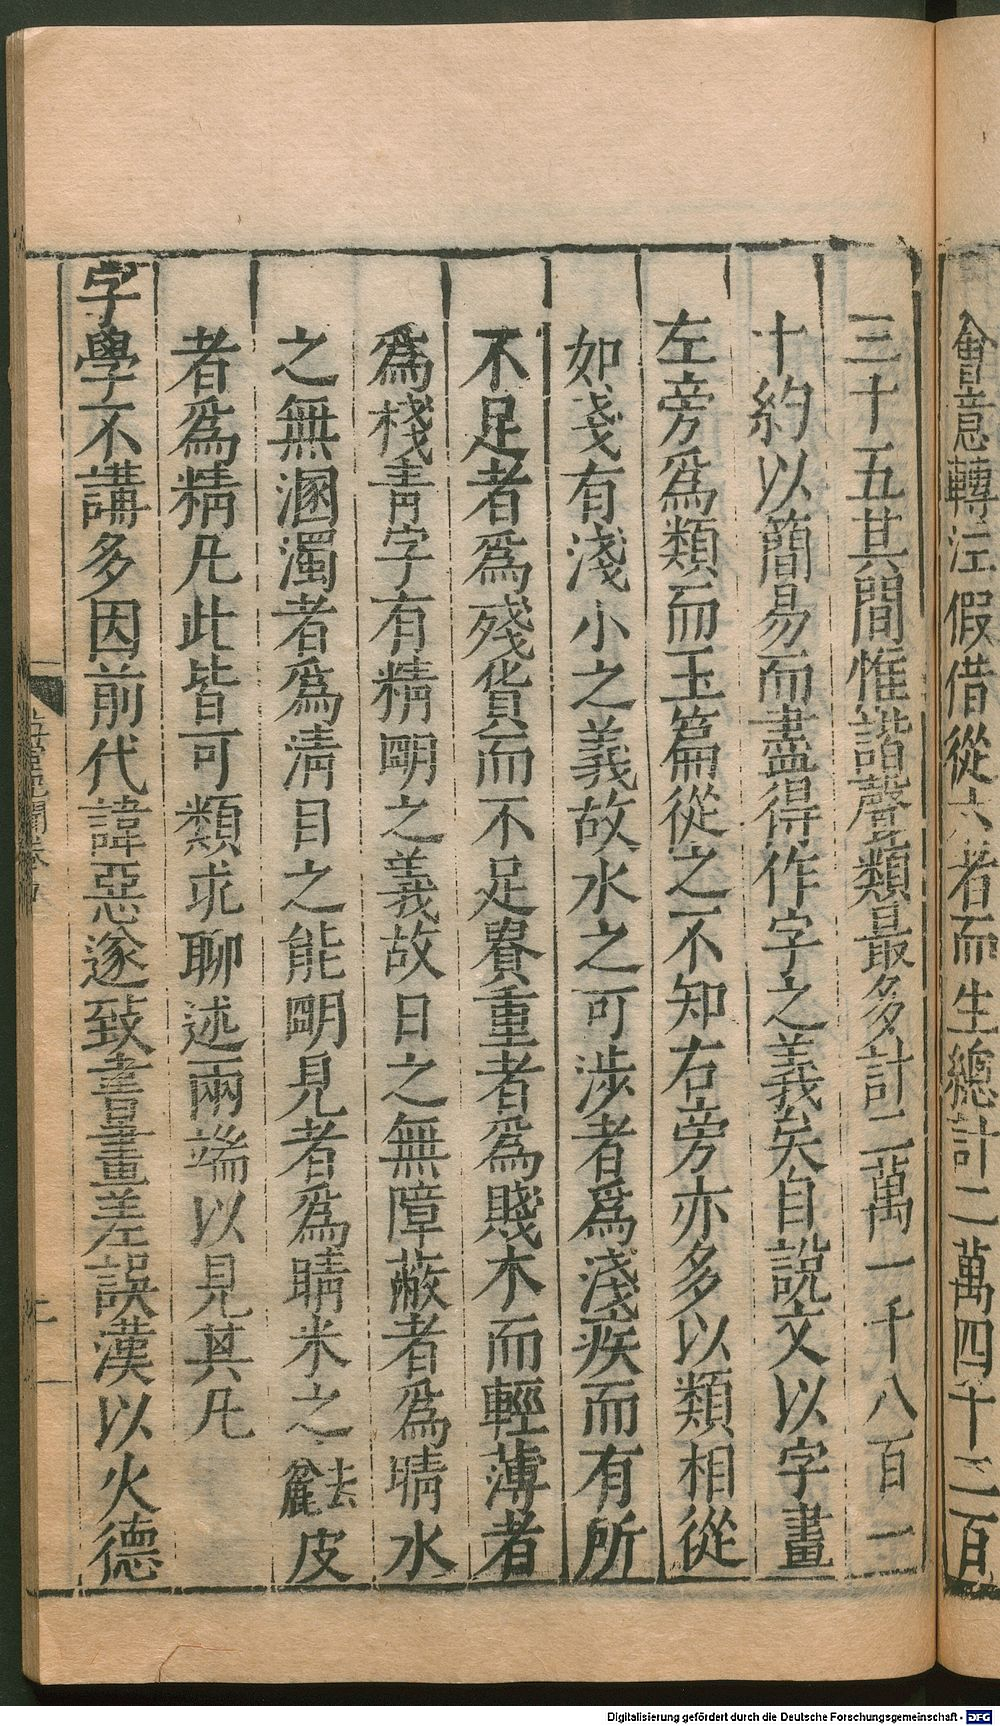 會意轉注假借從六者而生總計二萬四千二百
三十五其間惟諧聲類最多計二萬一千八百一
十約以簡易而盡得作字之義矣自說文以字畫
左旁爲類而玉篇從之不知右旁亦多以類相從
如戔有淺小之義故水之可涉者爲淺疾而有所
不足者爲殘貨而不足貴重者爲賤木而輕薄者
爲棧青字有精明之義故日之無障蔽者爲晴水
之無溷濁者爲清目之能明見者爲睛米之去麄皮
者爲精凡此皆可類求聊述兩端以見其凡
字學不講多因前代諱惡遂致書畫差誤漢以火德
Digitalisierung gefördert durch die Deutsche Forschungsgemeinschaft - DFG